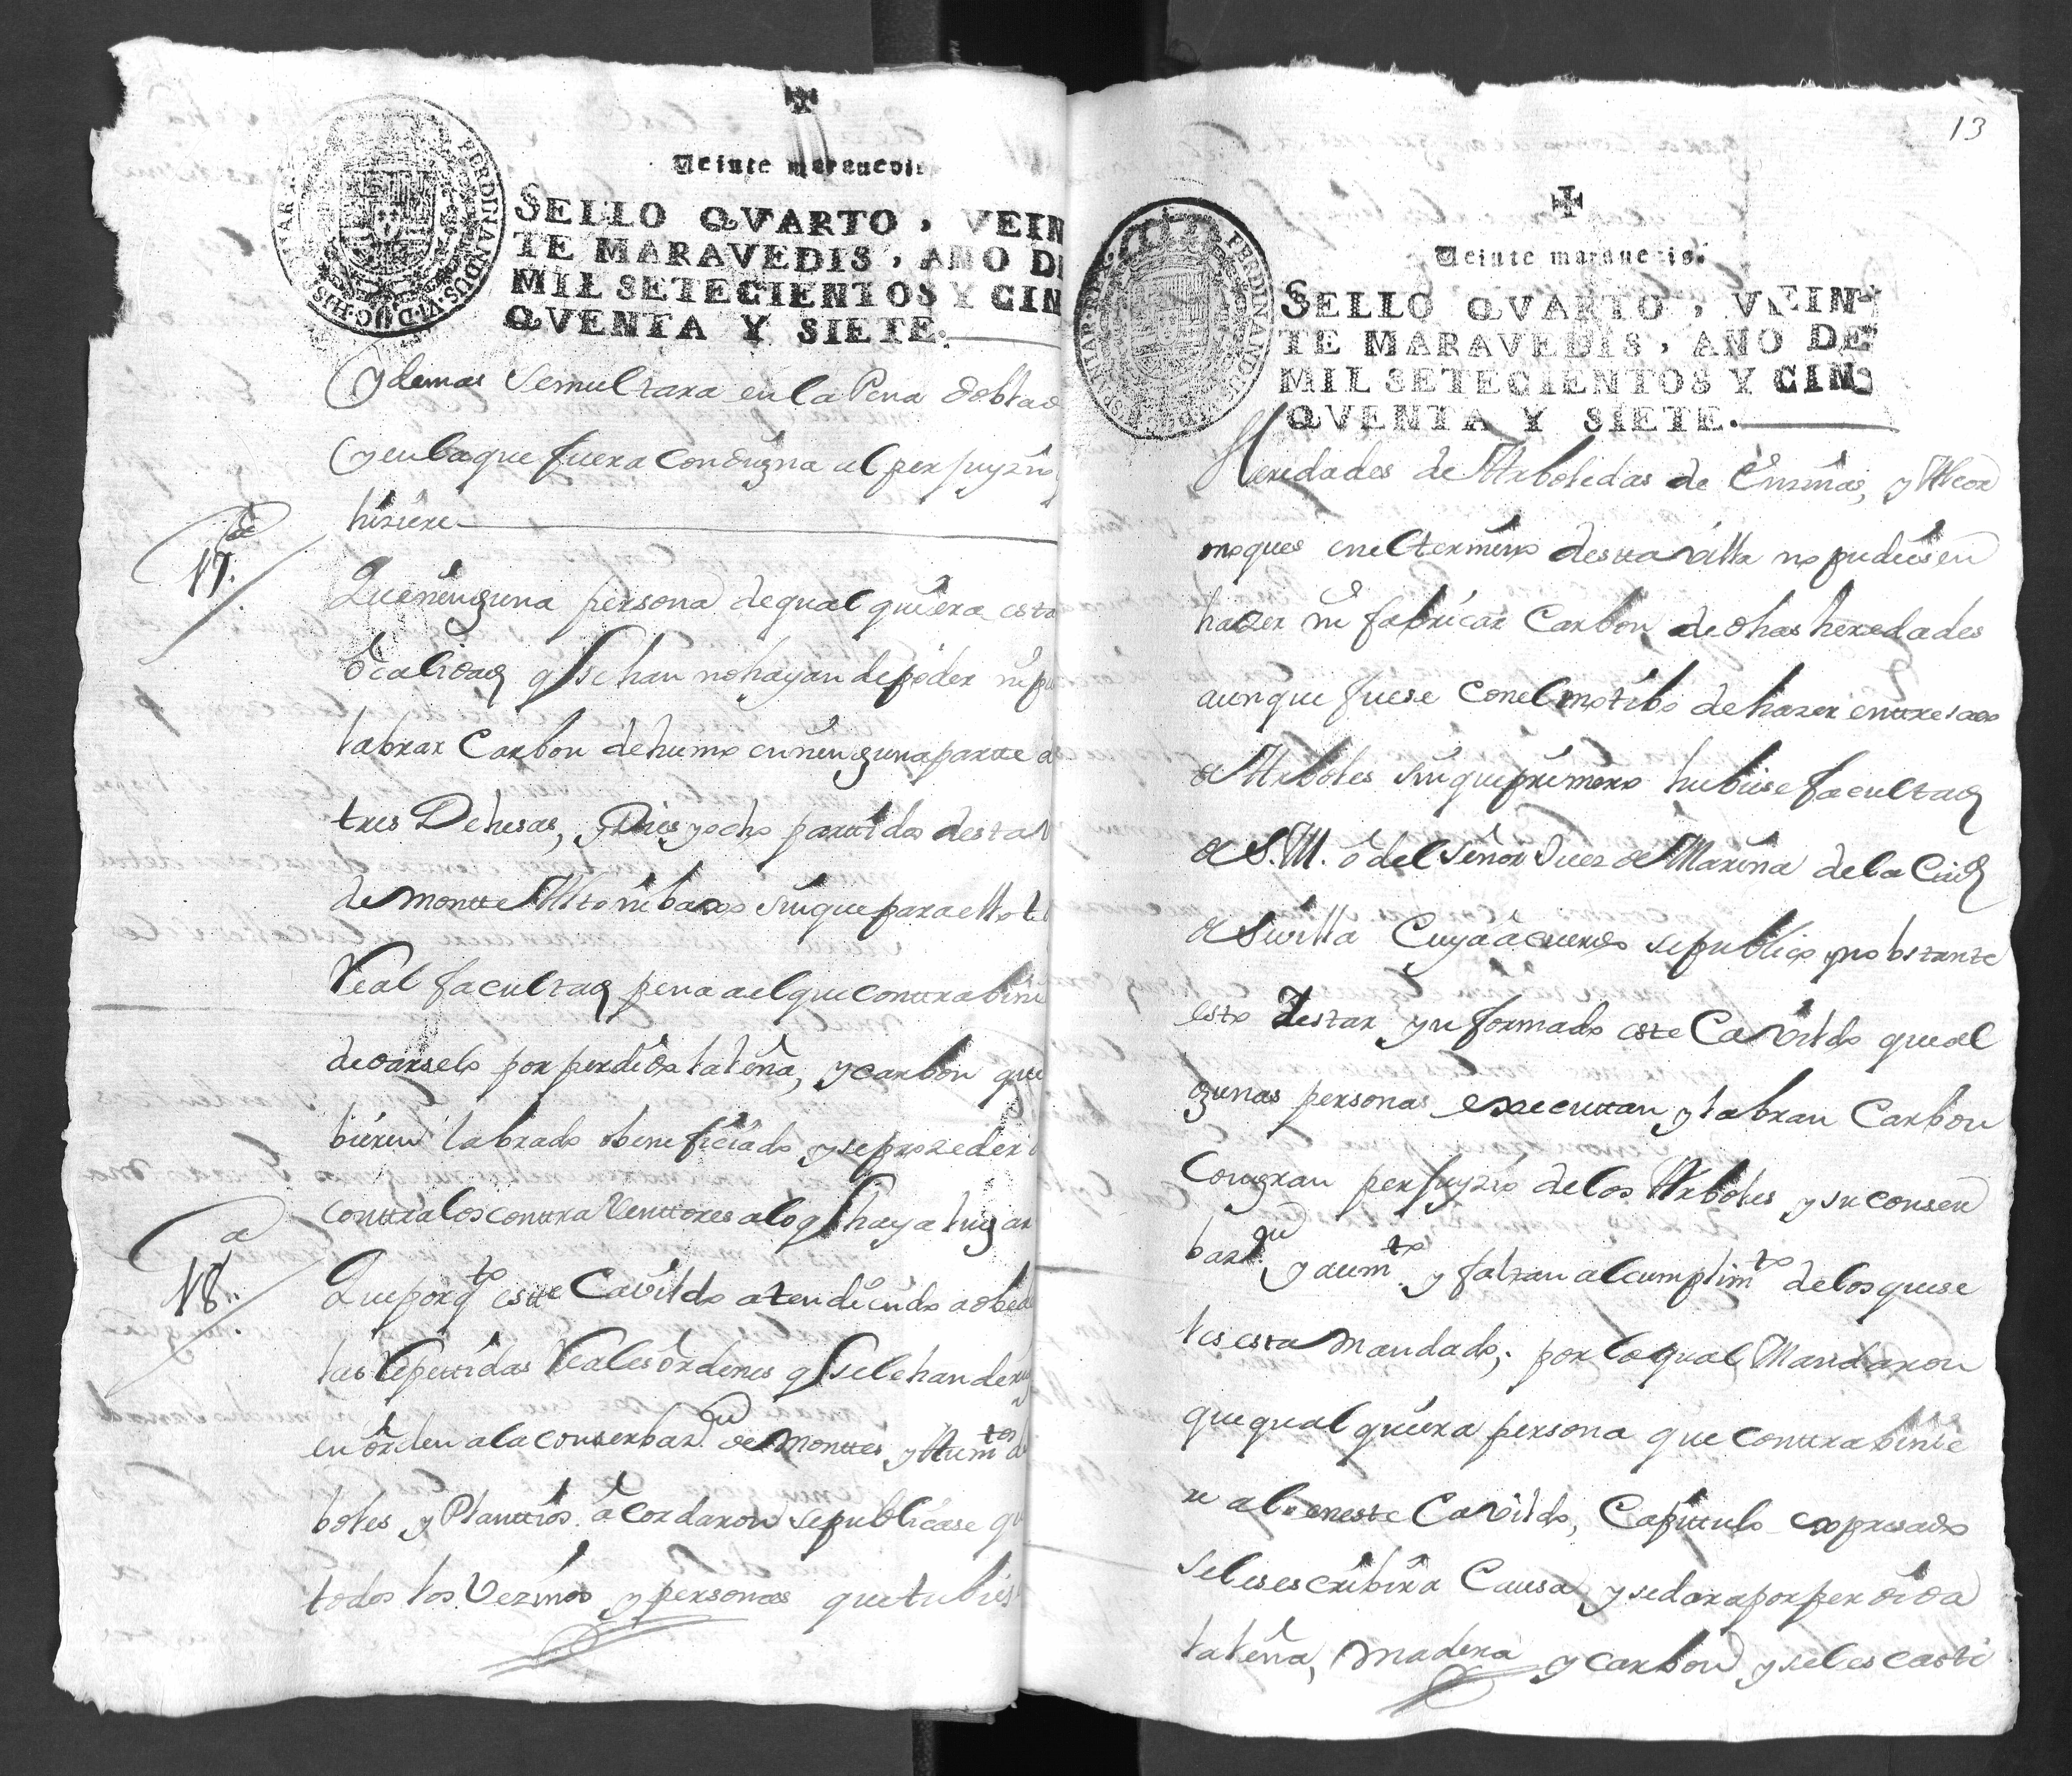 Veinte maravedis
SELLO QVARTO, VEIN
TE MARAVEDIS, AÑO DE
MIL SETECIENTOS Y CIN
QVENTA Y SIETE.
FERDINANDUS VI D G HISPANIAR REX
y demas se multara en la Pena doblad
y en la que fuera condigna al perjuyzio
hiziere
17.a
Que ninguna persona de qual quiera esta
ô calidad q̃ sehan no hayan de poder ni pu
labrar Carbon de humo en ninguna partte d
tres Dehesas, y Dies y ocho parttidos desta V
de montte Alto ni baxo sin que para ello te
Real facultad pena a el que conttrabini
de darselo por perdido la leña, y carbon que
bieren labrado o beneficiado y se prozeder
conttra los conttra Venttores a lo q̃ haya lugar
18.a
Que por q.to estte Cavildo atendiendo a obed
las Repettidas Reales ôrdenes q̃ se le han de
en ôrden a la conserbaz.on de Monttes y Aum.tos d
boles y Planttios âcordaron se publicase q
todos los Vezinos y personas que tubies
13
Veinte maravedis.
SELLO QVARTO, VEIN
TE MARAVEDIS, AÑO DE
MIL SETECIENTOS Y CIN
QVENTA Y SIETE.
FERDINANDUS VI D G HISPANIAR REX
Heredades de Arboledas de Enzinas, y Alcor
noques en el termino destta villa no pudiesen
hazer ni fabricar Carbon de dhas heredades
aunque fuese con el motibo de hazer enttresaco
de Arboles sin que primero hubiese facultad
de S.M. ô del señor Juez de Marina de la Ciud
de Sivilla Cuyo âcuerdo se publico y no obstante
esto estar ynformado este Cavildo que al
gunas personas executtan y labran Carbon
Con gran perjuyzio de los Arboles y su conser
baz.on y aum.to y faltan al cumplim.to de los que se
les esta Mandado; por lo qual Mandaron
que qual quiera persona que conttrabinie
re al en este Cavildo, Capittulo expresado
se les escribira Causa y se dara por perdida
la leña, Madera y carbon y se les casti